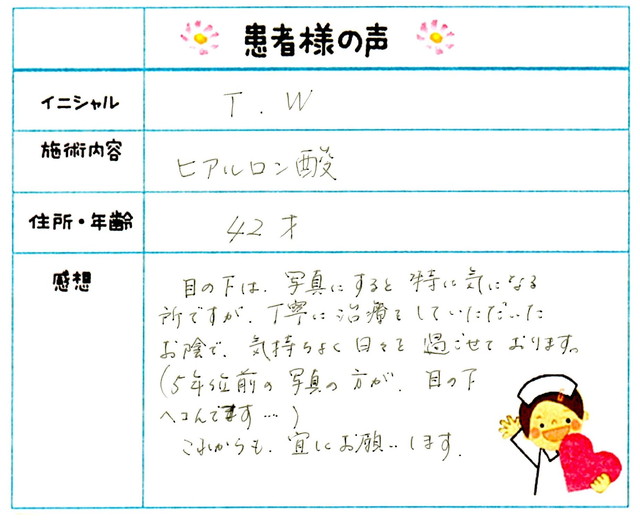 患者様の声
イニシャル
T.W
施術内容
ヒアルロン酸
住所・年齢
42才
感想
目の下は、写真にすると特に気になる
所ですが、丁寧に治療をしていただいた
お陰で、気持ちよく日々を過ごせております。
(5年位前の写真の方が、目の下
ヘコんでます…)
これからも、宜しくお願いします。